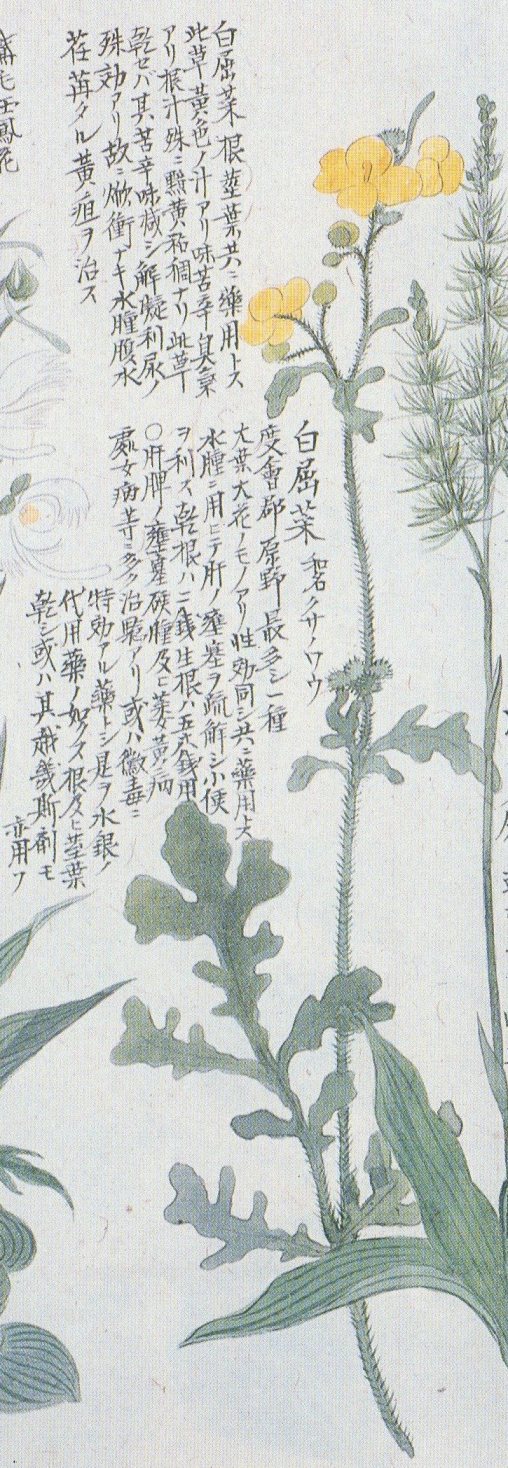 白屈菜根莖葉共ニ藥用トス
此草黃色ノ汁アリ味苦辛臭氣
アリ根汁殊ニ黯黃和稠ナリ此草
乾セバ其苦辛味減シ解凝利尿ノ
殊効アリ故ニ焮衝ナキ水腫腹水
荏苒タル黃疸ヲ治ス
白屈菜 和名クサノワウ
度會郡原野最多シ一種
大葉大花ノモノアリ性効同シ共ニ藥用トス
水腫ニ用ヒテ肝ノ壅塞ヲ疏解シ小便
ヲ利ス乾根ハ二錢生根ハ五六錢用
○肝脾ノ壅塞硬腫及ヒ萎黃病
處女病等ニ多ク治驗アリ或ハ黴毒ニ
特効アル藥トシ是ヲ水銀ノ
代用藥ノ如クス根及ヒ莖葉
乾シ或ハ其越幾斯劑モ
亦用フ